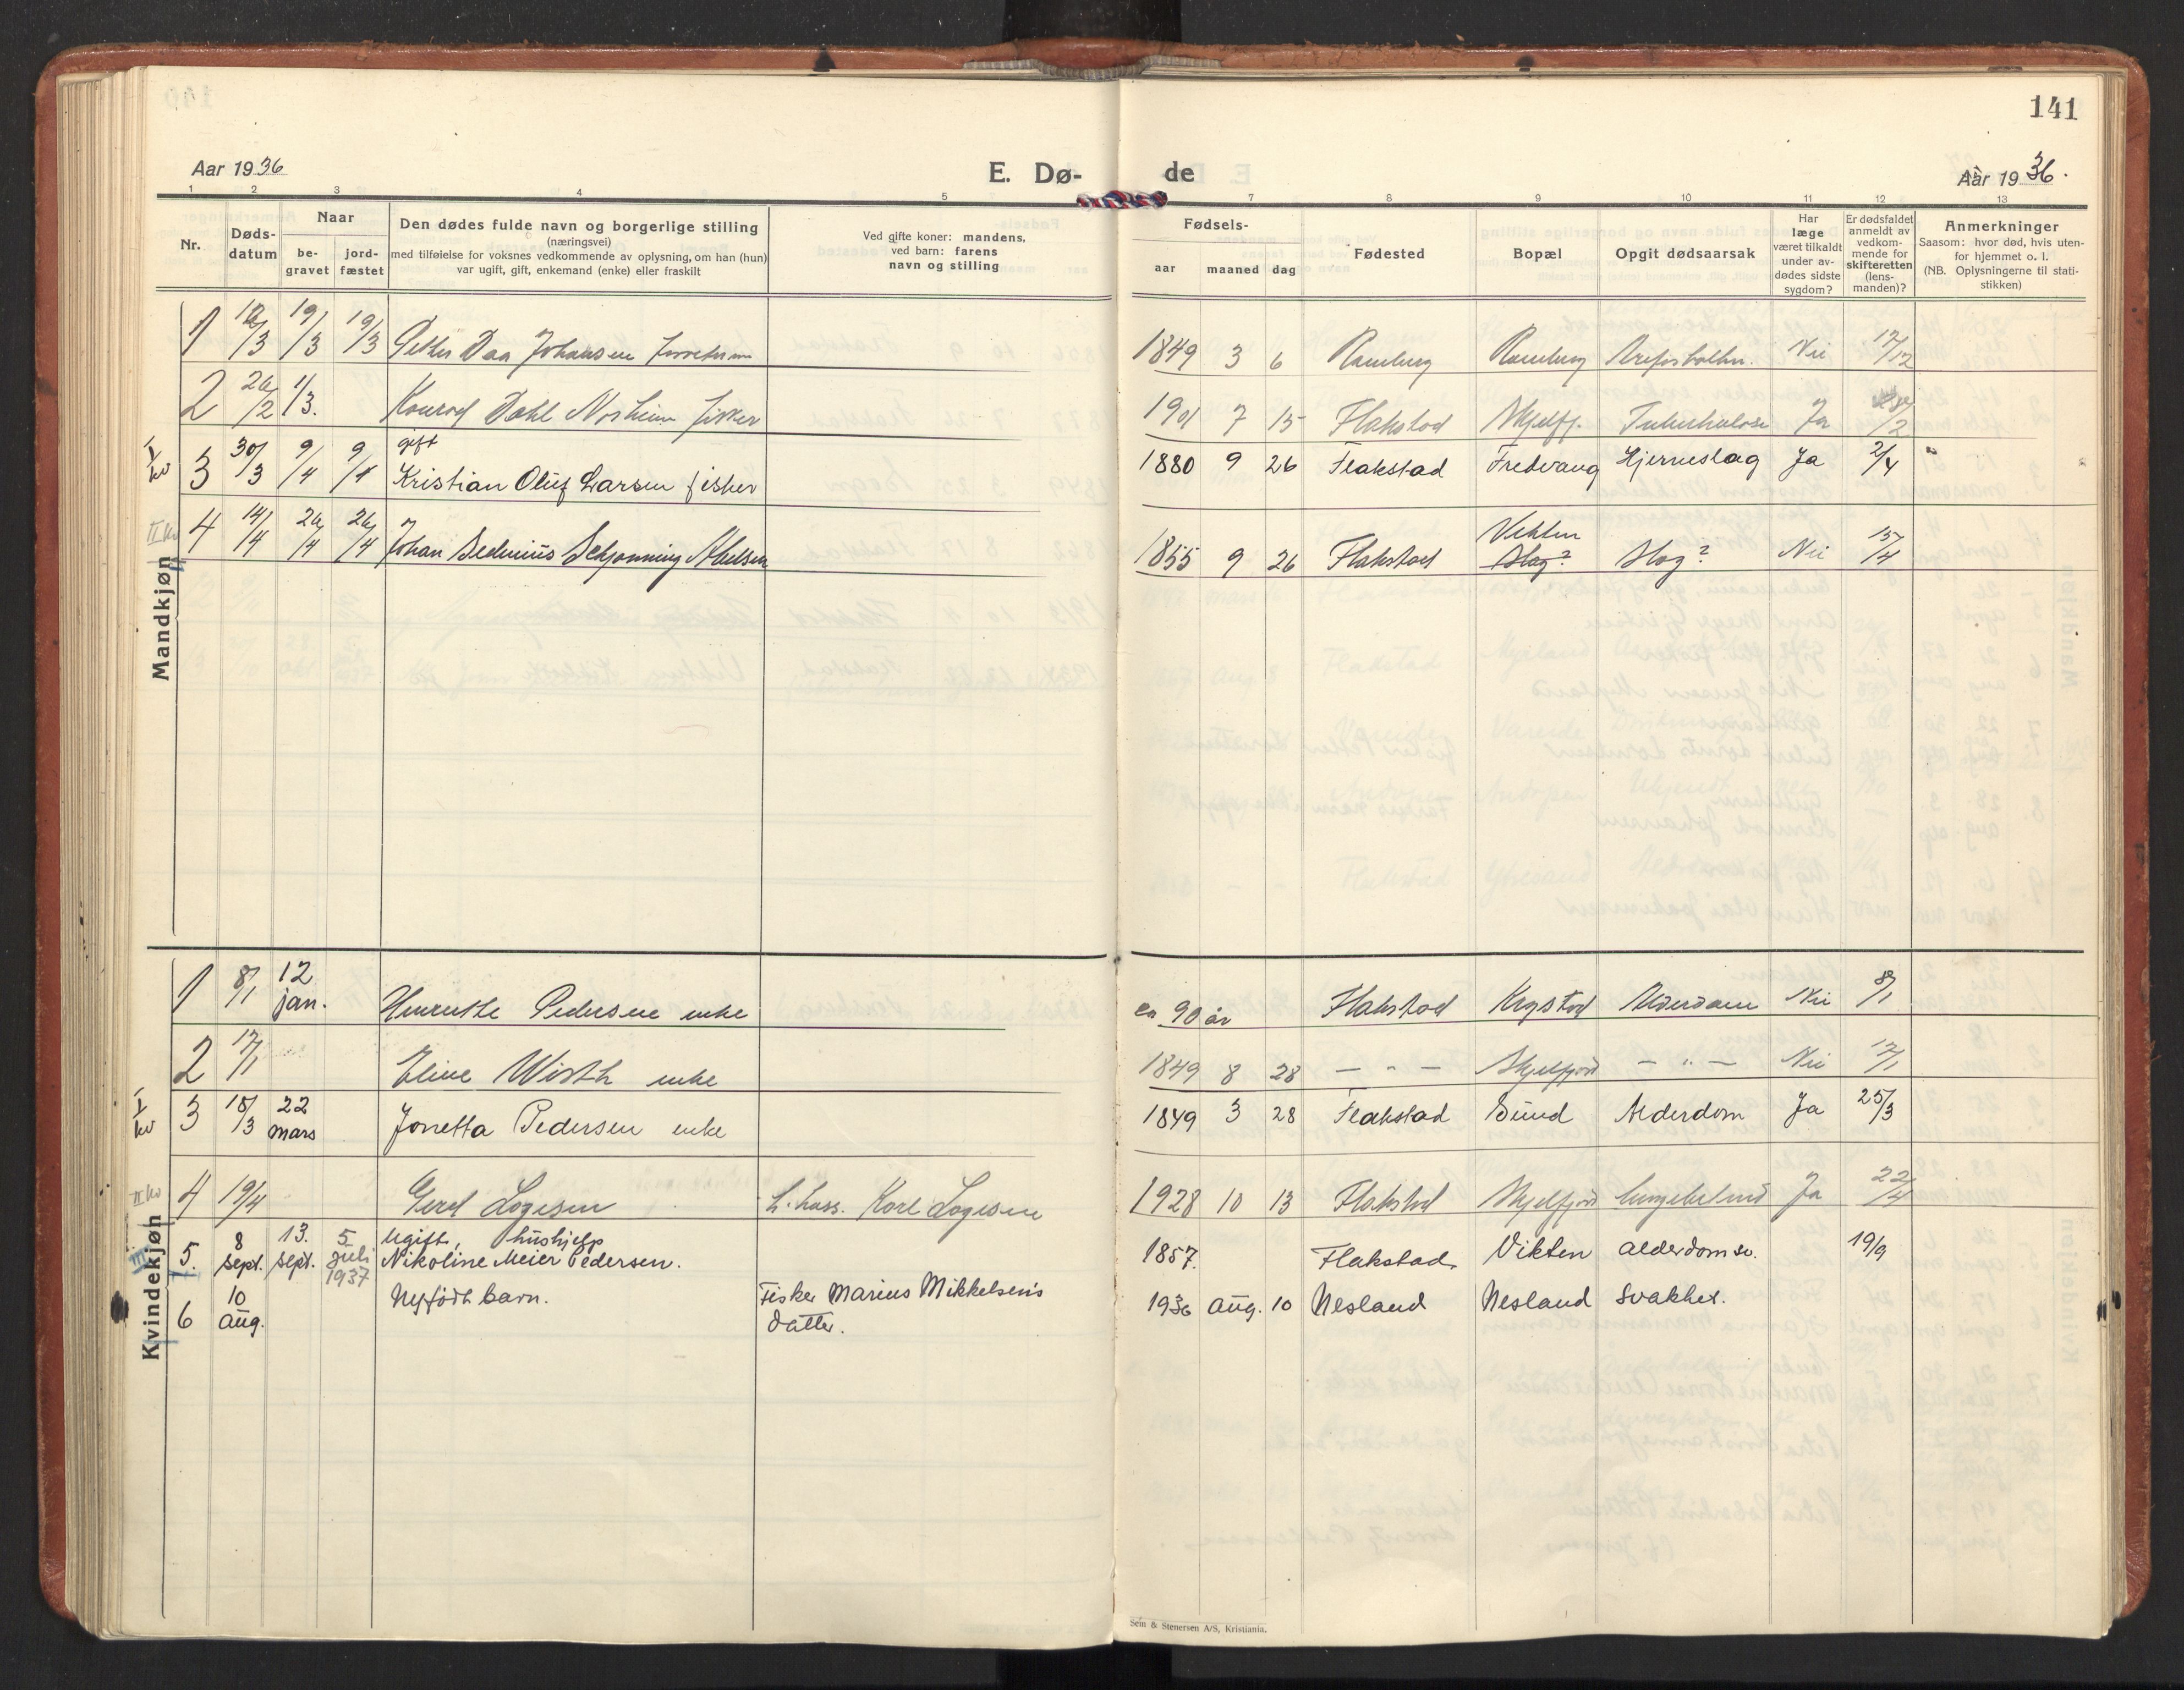 141
Aar 1936
E. Dø-
de
Aar 1936.
1 2 3 4 5 7 8 9 10 11 12 13
Nr.
Døds-
datum
Naar
be-
gravet
jord-
fæstet
Den dødes fulde navn og borgerlige stilling
(næringsvei)
med tilføielse for voksnes vedkommende av oplysning, om han (hun)
var ugift, gift, enkemand (enke) eller fraskilt
Ved gifte koner: mandens,
ved barn: farens
navn og stilling
Fødsels-
aar maaned dag
Fødested
Bopæl
Opgit dødsaarsak
Har
læge
været tilkaldt
under av-
dødes sidste
sygdom?
Er dødsfaldet
anmeldt av
vedkom-
mende for
skifteretten
(lens-
manden)?
Anmerkninger
Saasom: hvor død, hvis uten-
for hjemmet o. l.
(NB. Oplysningerne til stati-
stikken)
Mandkjøn
1 /3 19/3 19/3 Petter Daa Johansen 1849 3 6 Ramberg Ramberg Nei 17/12
2 26/2 1/3. Konrad Dahl Norheim fisker 1901 7 15 Flakstad Skjelfj. Tuberkulose Ja /2
I kv
gift
3 30/3 9/4 9/4 Kristian Oluf Larsen fisker 1880 9 26 Flakstad Fredvang Hjerneslag Ja 2/4
II kv
Vikten
4 14/4 26/4 26/4 Johan Schjønning 1855 9 26 Flakstad Slag? Slag? Nei 15/4
Kvindekjøn
1 8/1 12 jan. Pedersen enke ca 90 år Flakstad Krystad Alderdom Nei 8/1
2 17/1 Eline Wirth enke 1849 8 28 — " — Skjelfjord — " — Nei 17/1
I kv
3 18/3 22 mars Jonetta Pedersen enke 1849 3 28 Flakstad Sund Alderdom Ja 25/3
II kv
4 19/4 Gerd Logesen Karl Logesen 1928 10 13 Flakstad Skjelfjord Ja 22/4
III
Ugift, hushjelp
5. 8 sept. 13. sept. 5 juli 1937 Nikoline Meier Pedersen. 1857. Flakstad. Vikten alderdomsv. 19/9
6 10 aug. Nyfødt barn. Fisker Marius Mikkelsen's 1936 aug. 10 Nesland Nesland Svakhet.
datter.
Sein & Stenersen A/S, Kristiania.